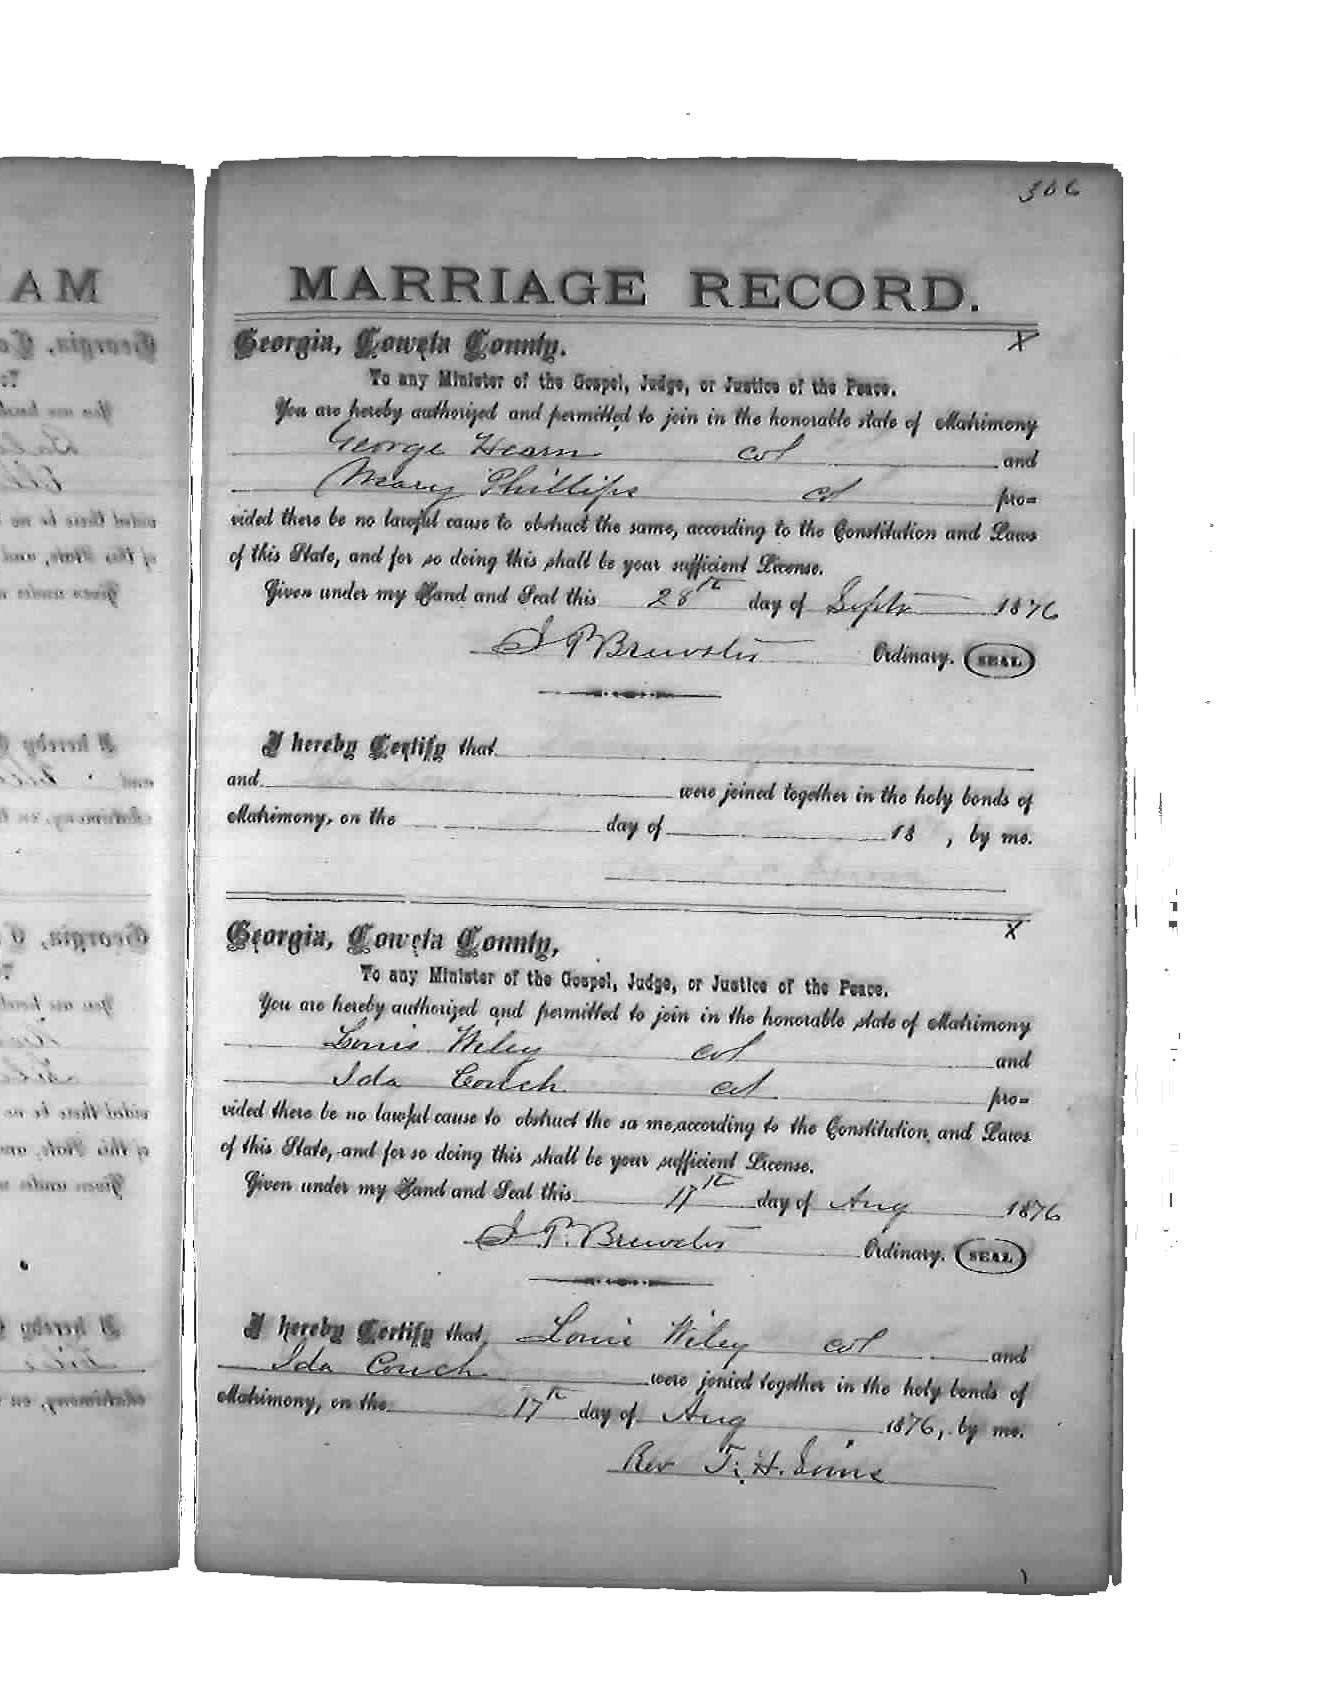 306
MARRIAGE RECORD.
Georgia, Coweta County.
X
To any Minister of the Gospel, Judge, or Justice of the Peace.
You are hereby authorized and permitted to join in the honorable state of Matrimony
George Hearn col and
Mary Phillips col pro=
vided there be no lawful cause to obstruct the same, according to the Constitution and Laws
of this State, and for so doing this shall be your sufficient License.
Given under my Hand and Seal this 28th day of Septr 1876
J P Brewster Ordinary. SEAL
I hereby Certify that
and were joined together in the holy bonds of
Matrimony, on the day of 18 , by me.
Georgia, Coweta County,
X
To any Minister of the Gospel, Judge, or Justice of the Peace.
You are hereby authorized and permitted to join in the honorable state of Matrimony
Louis Wiley col and
Ida Couch col pro=
vided there be no lawful cause to obstruct the sa me, according to the Constitution and Laws
of this State, and for so doing this shall be your sufficient License.
Given under my Hand and Seal this 17th day of Aug 1876
J P. Brewster Ordinary. SEAL
I hereby Certify that Louis Wiley col and
Ida Couch were jonied together in the holy bonds of
Matrimony, on the 17th day of Aug 1876, by me.
Rev T. H.